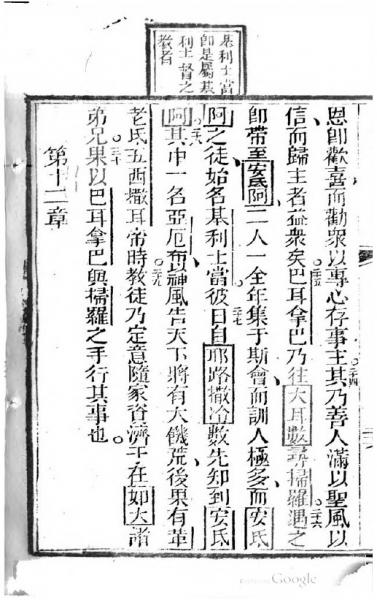 基利士當
卽是屬基
利士督之
教者
恩卽歡喜而勸衆以專心存事主二十四其乃善人滿以聖風以
信而歸主者益衆矣二十五巴耳拿巴乃往大耳數尋掃羅二十六遇之
卽帶至安氐阿二人一全年集于斯會而訓人極多而安氐
阿之徒始名基利士當二十七彼日自耶路撒冷數先知到安氐
阿二十八其中一名亞厄布以神風告天下將有大饑荒後果有革
老氐五西撒耳帝時二十九教徒乃定意隨家資濟于在如大諸
弟兄三十果以巴耳拿巴與掃羅之手行其事也
第十二章
Google